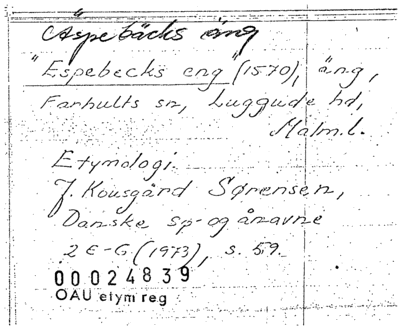 Äspebäcks äng
"Espebecks eng" (1570), äng,
Farhults sn, Luggude hd,
Malm.l.
Etymologi.
J. Kousgård Sørensen,
Danske sø- og ånavne
2 E-G (1973), s. 59.
00024839
OAU etym reg